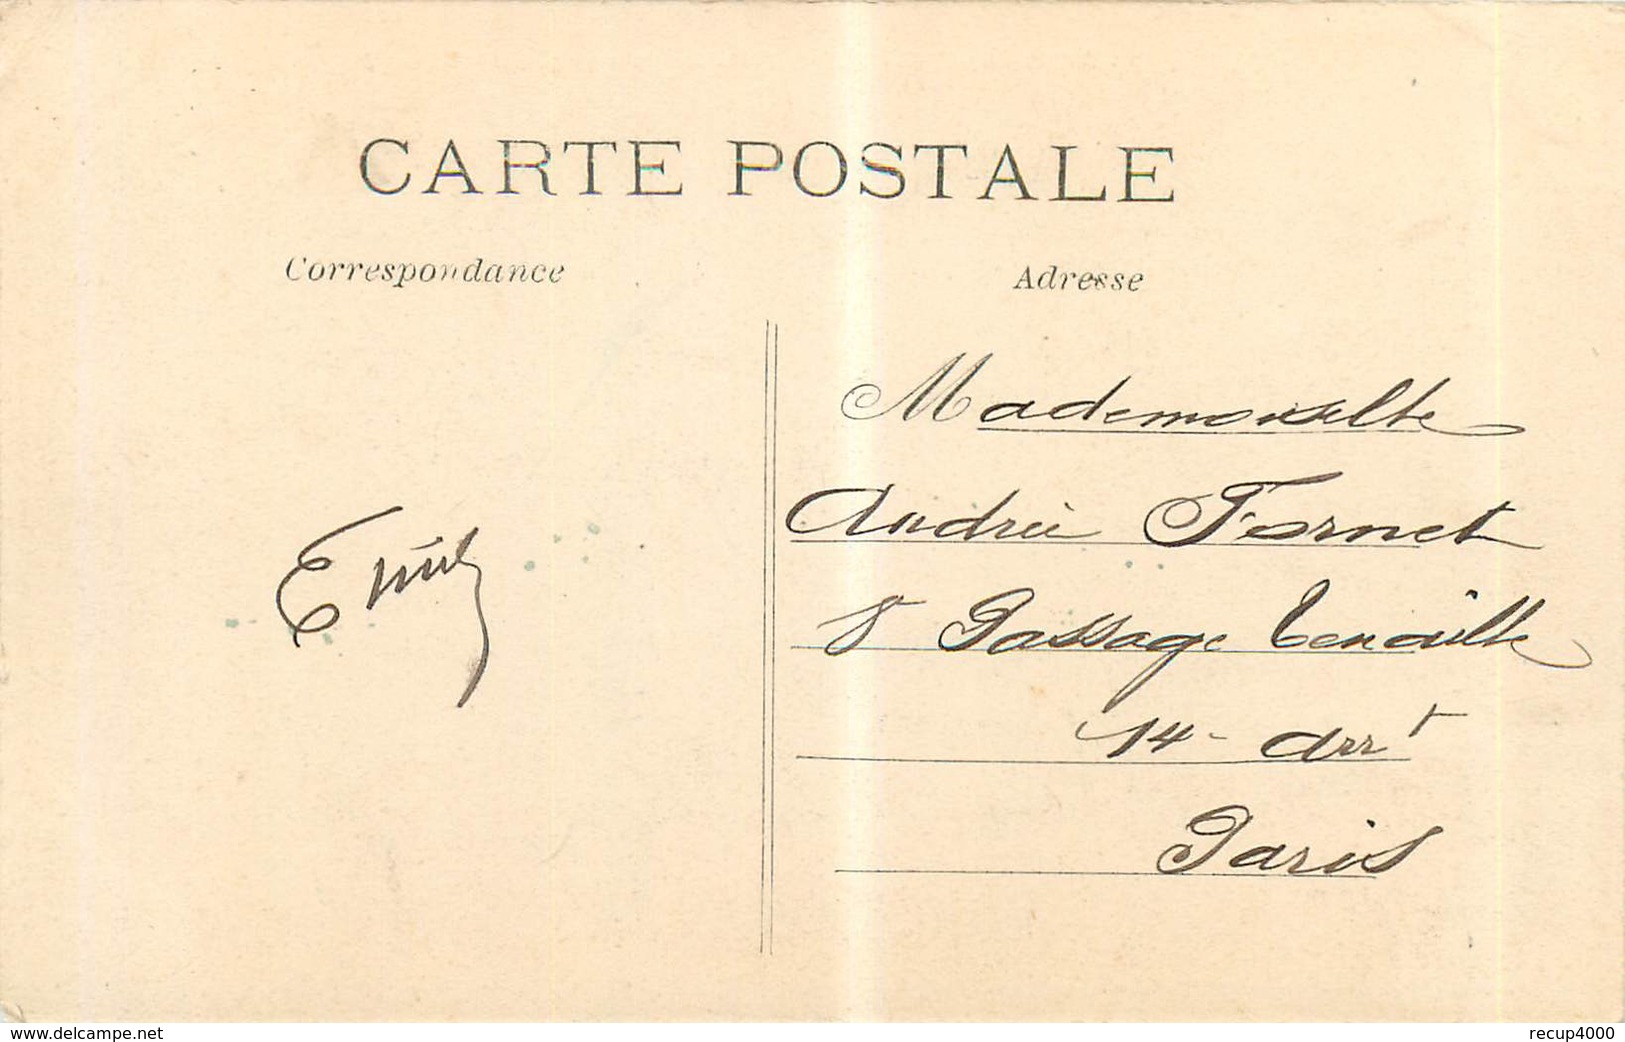 CARTE POSTALE
Correspondance
Adresse
Emile
Mademoiselle
Andrée Fornet
8 Passage Tenaille
14 - Arrt
Paris
www.delcampe.net
recup4000